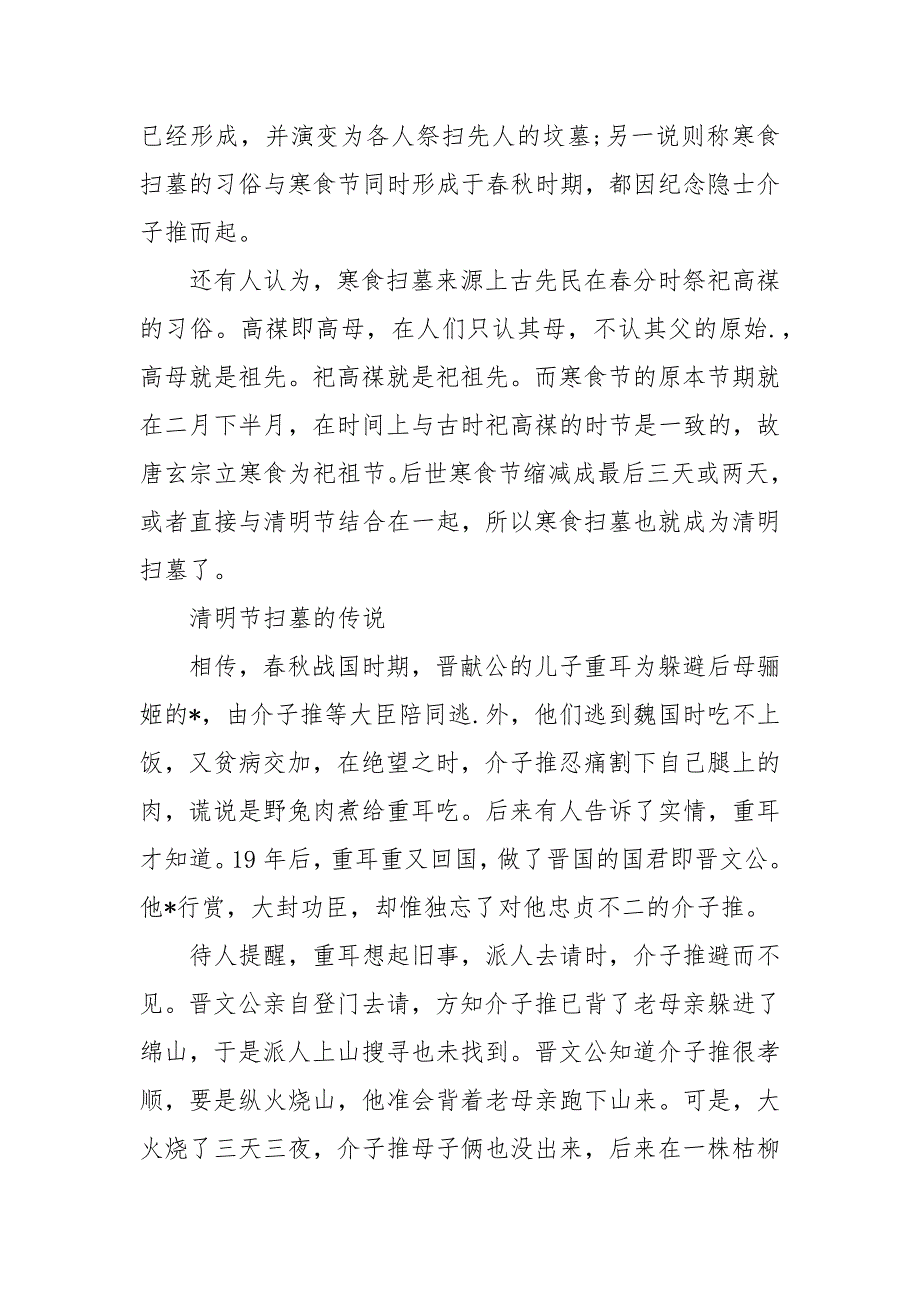 已经形成，并演变为各人祭扫先人的坟墓;另一说则称寒食
扫墓的习俗与寒食节同时形成于春秋时期，都因纪念隐士介
子推而起。
还有人认为，寒食扫墓来源上古先民在春分时祭祀高禖
的习俗。高禖即高母，在人们只认其母，不认其父的原始.，
高母就是祖先。祀高禖就是祀祖先。而寒食节的原本节期就
在二月下半月，在时间上与古时祀高禖的时节是一致的，故
唐玄宗立寒食为祀祖节。后世寒食节缩减成最后三天或两天，
或者直接与清明节结合在一起，所以寒食扫墓也就成为清明
扫墓了。
清明节扫墓的传说
相传，春秋战国时期，晋献公的儿子重耳为躲避后母骊
姬的*，由介子推等大臣陪同逃.外，他们逃到魏国时吃不上
饭，又贫病交加，在绝望之时，介子推忍痛割下自己腿上的
肉，谎说是野兔肉煮给重耳吃。后来有人告诉了实情，重耳
才知道。19 年后，重耳重又回国，做了晋国的国君即晋文公。
他*行赏，大封功臣，却惟独忘了对他忠贞不二的介子推。
待人提醒，重耳想起旧事，派人去请时，介子推避而不
见。晋文公亲自登门去请，方知介子推已背了老母亲躲进了
绵山，于是派人上山搜寻也未找到。晋文公知道介子推很孝
顺，要是纵火烧山，他准会背着老母亲跑下山来。可是，大
火烧了三天三夜，介子推母子俩也没出来，后来在一株枯柳